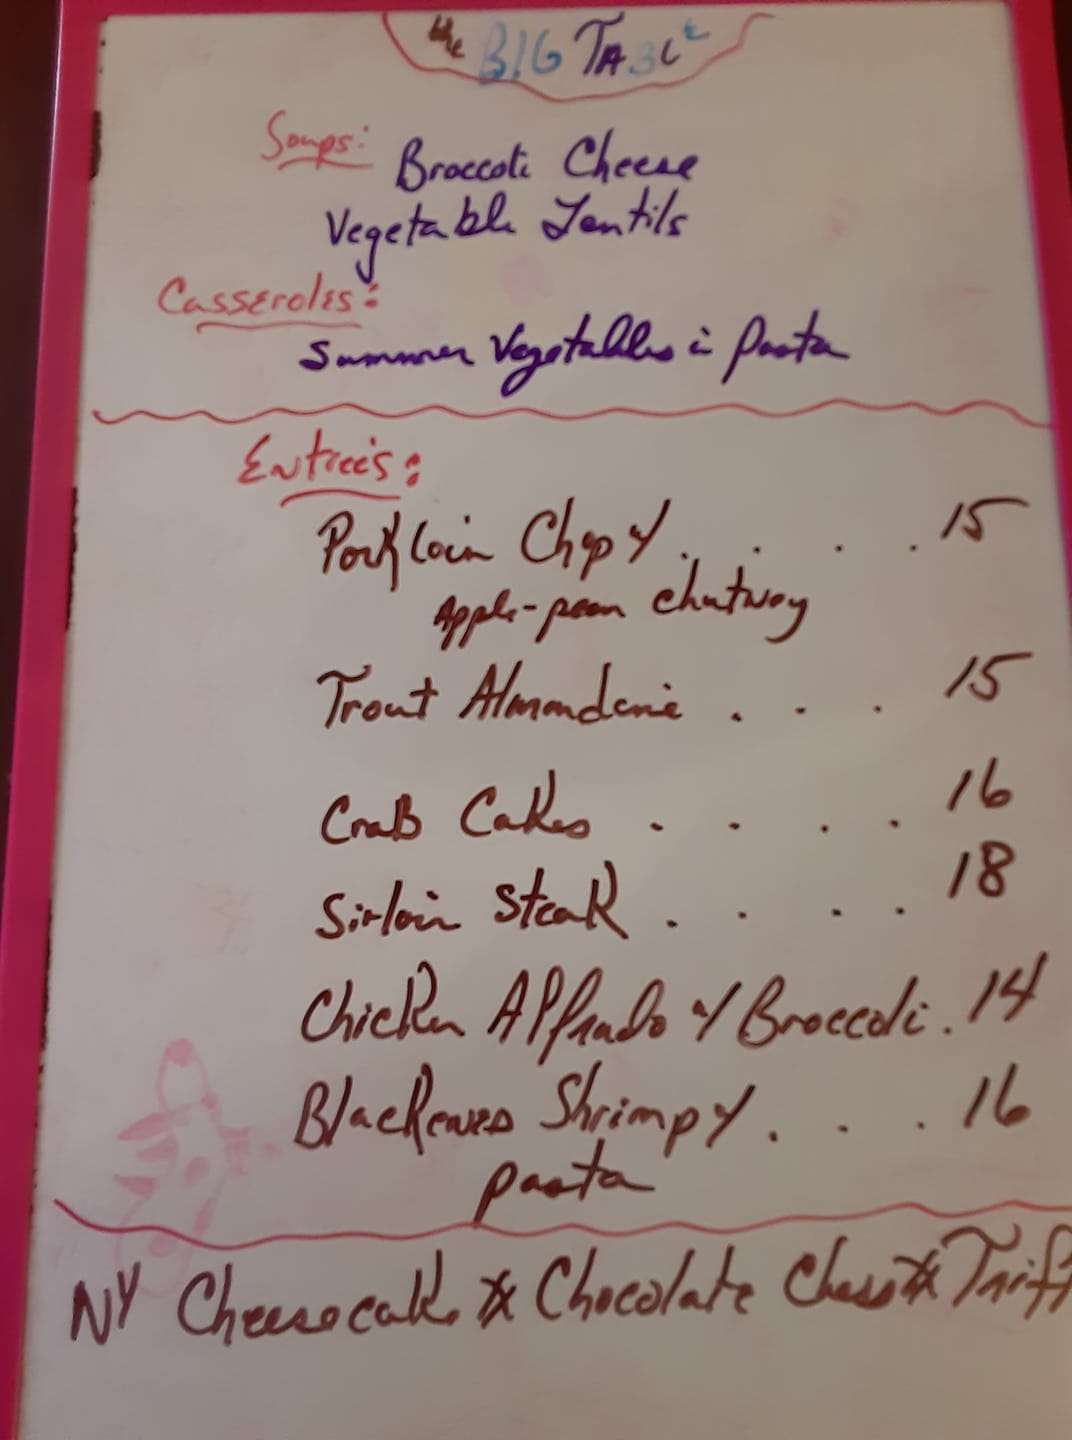 the BIG TABLE
Soups:
Broccoli Cheese
Vegetable Lentils
Casseroles:
Summer Vegetables in Pasta
Entree's:
Pork Loin Chop w/ . . . . 15
Apple-pear chutney
Trout Almondene . . . 15
Crab Cakes . . . . 16
Sirloin Steak . . . . 18
Chicken Alfrado w/ Broccoli . 14
Blackened Shrimp w/ . . . 16
pasta
NY Cheesecake * Chocolate Chess * Trif